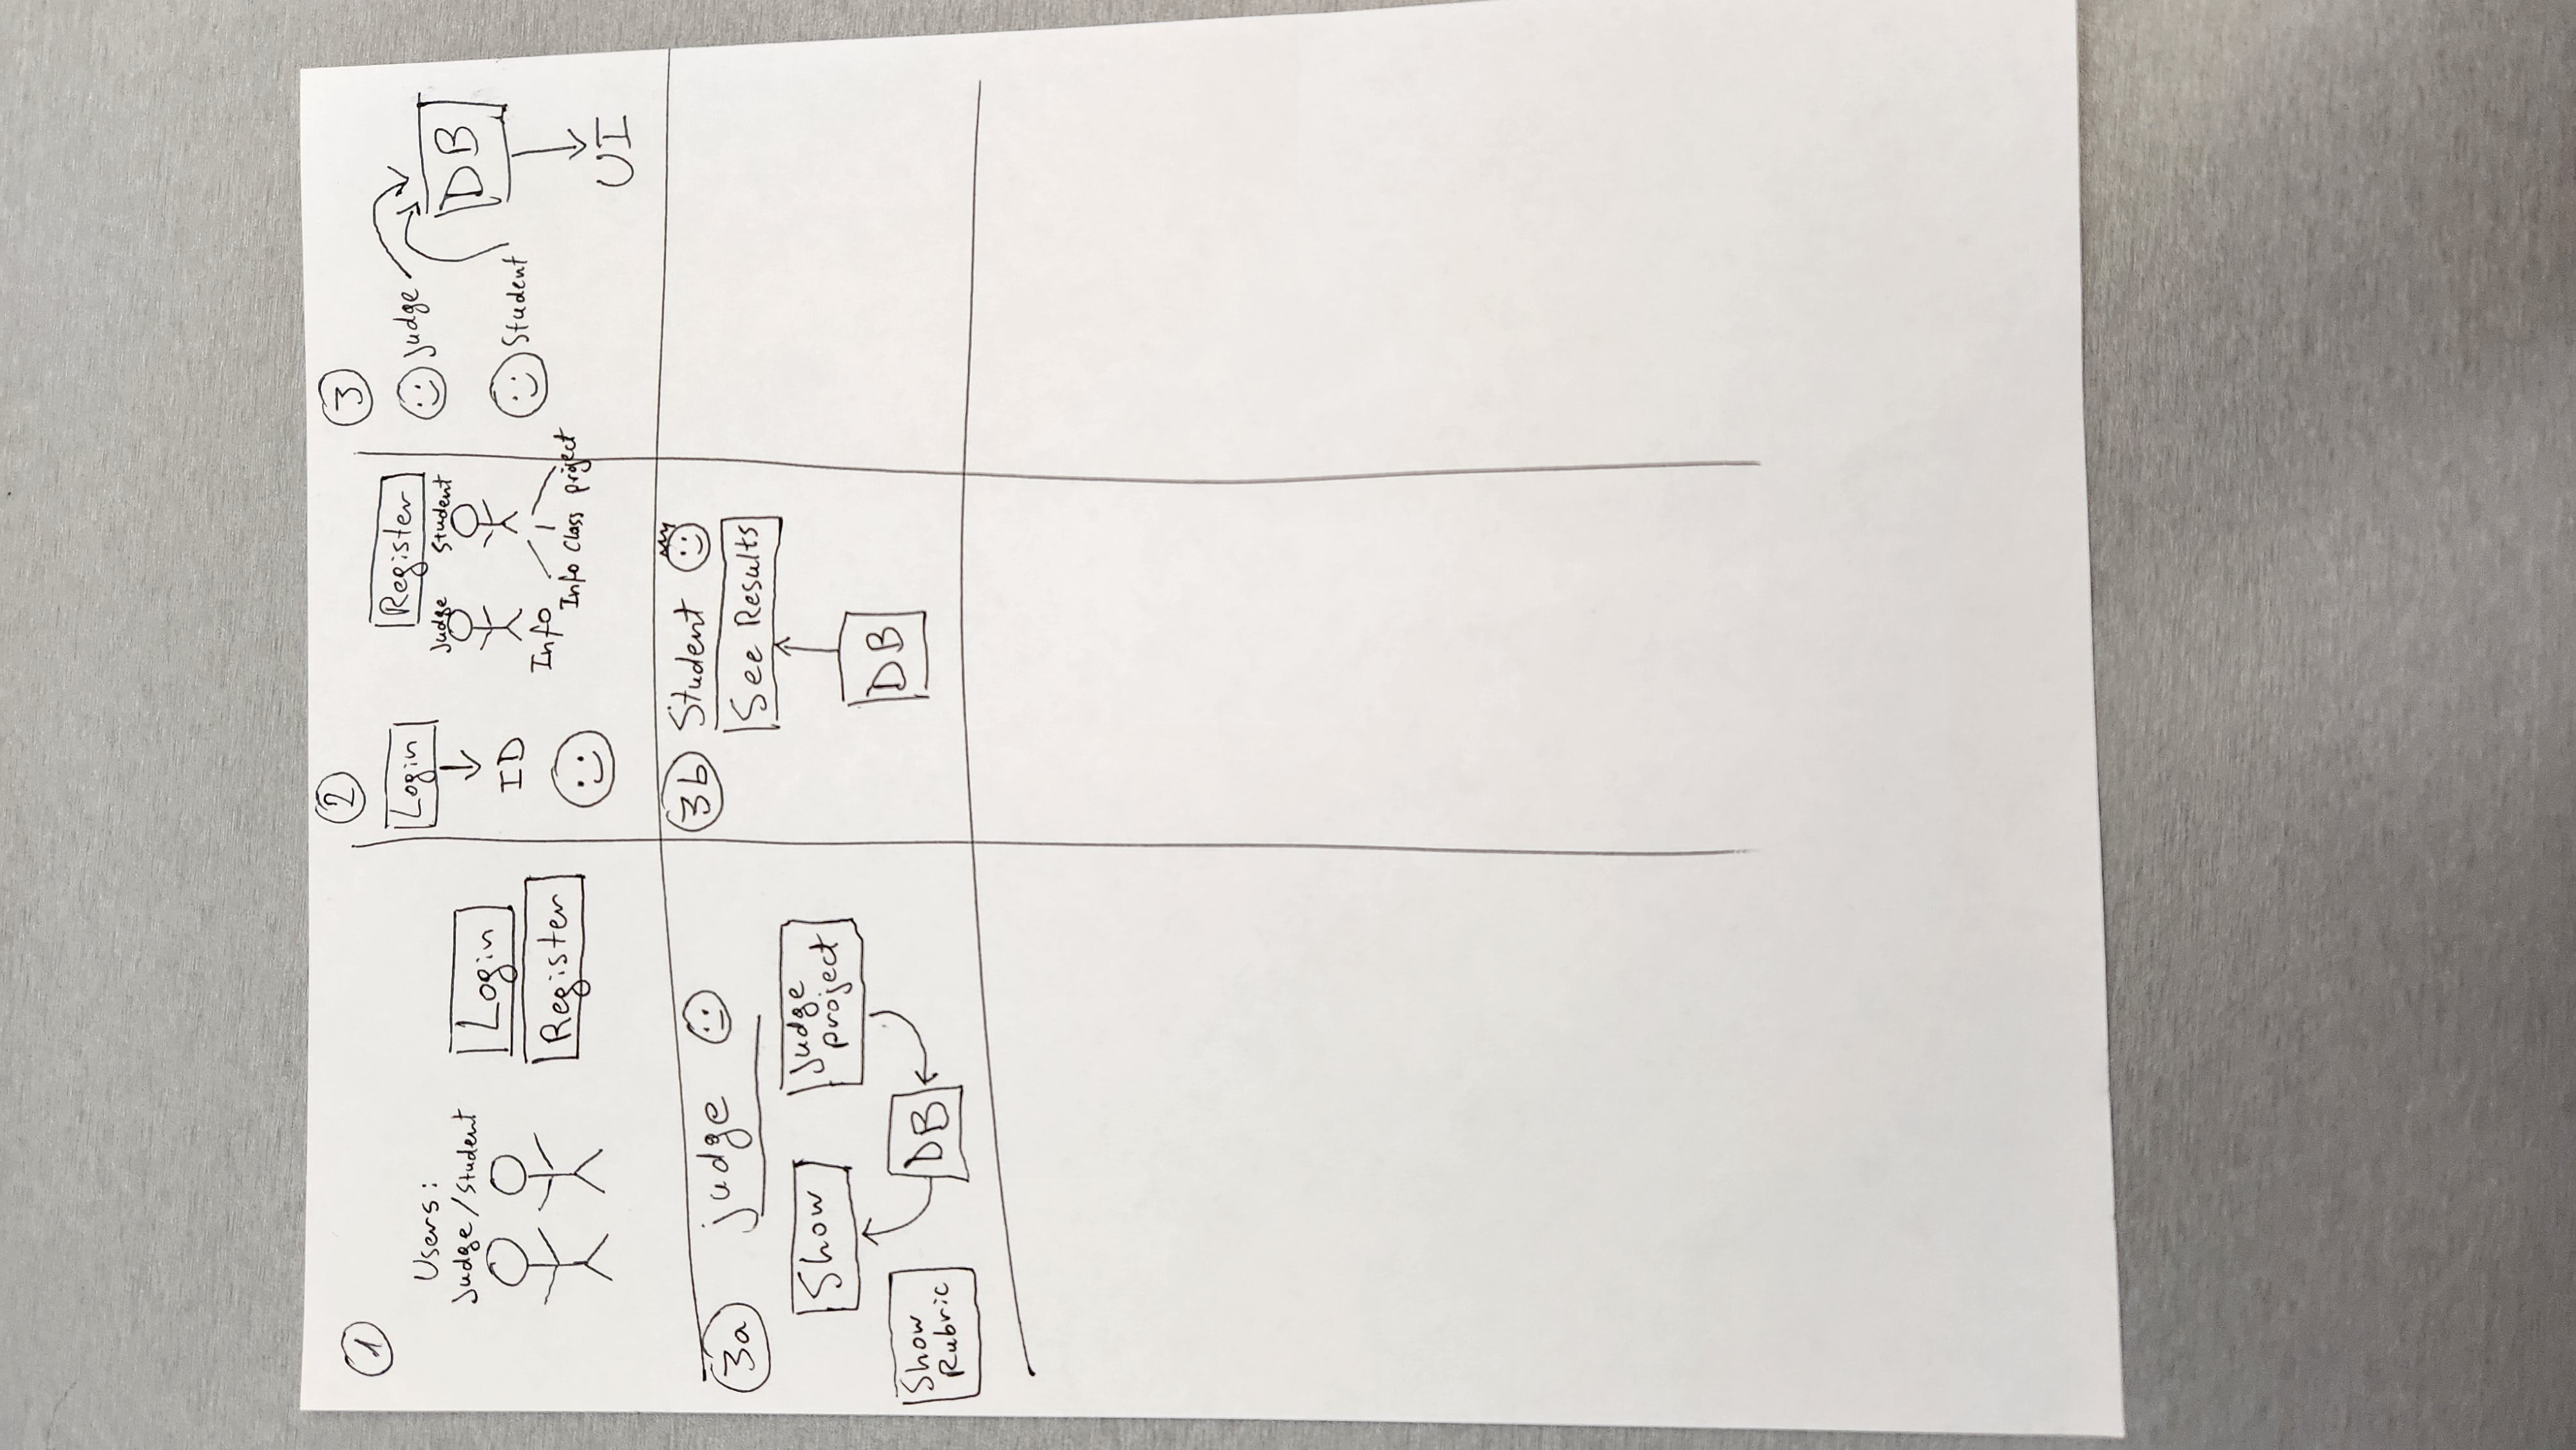 1
Users:
Judge/Student
Login
Register
2
Login
ID
Register
Judge Student
Info
Info Class project
3
Judge
Student
DB
UI
3a
judge
Show
Judge
project
Show
Rubric
DB
3b
Student
See Results
DB